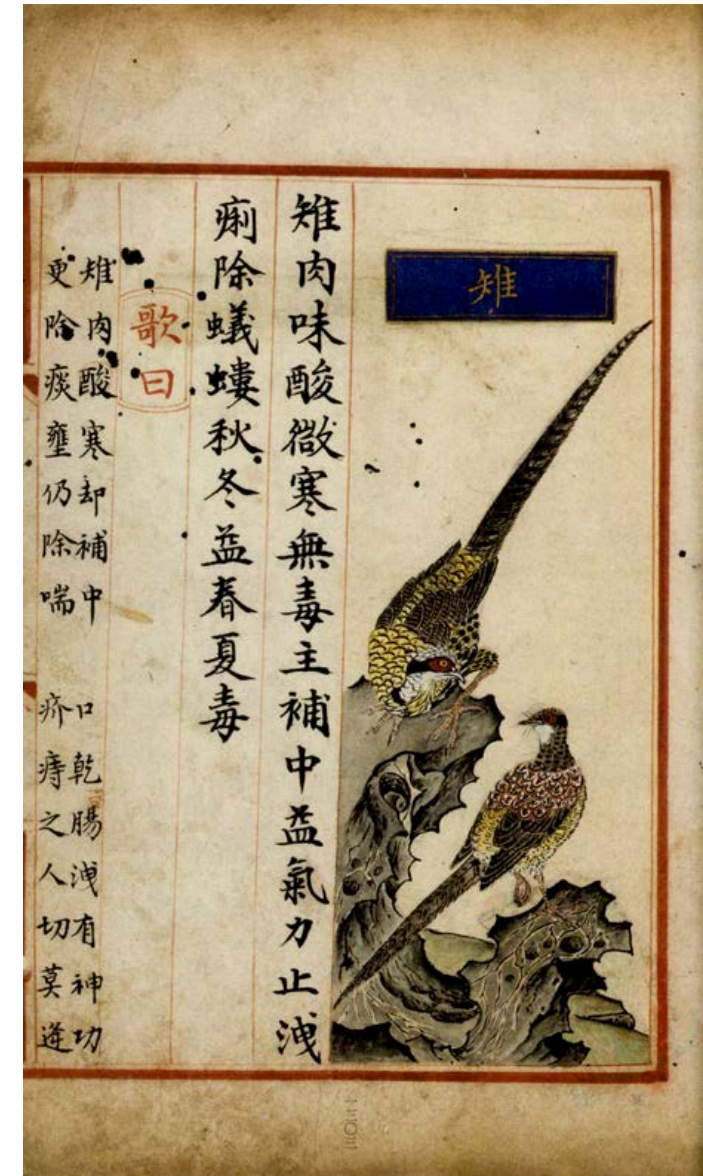 雉
雉肉味酸微寒無毒主補中益氣力止洩
痢除蟻螻秋冬益春夏毒
歌曰
雉肉酸寒却補中 口乾腸洩有神功
更除痰壅仍除喘 疥痔之人切莫逢